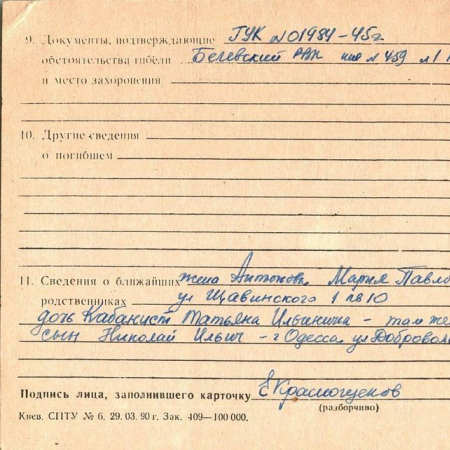 9. Документы, подтверждающие ГУК №01984-45г
обстоятельства гибели Беевский РВК №459 л1
и место захоронения
10. Другие сведения
о погибшем
11. Сведения о ближайших жена Антонова Мария Павло
родственниках ул Щавинского 1 кв 10
дочь Кабанист Татьяна Ильинична - там же
сын Николай Ильич - г Одесса ул Доброволь
Подпись лица, заполнившего карточку
(разборчиво)
Киев. СПТУ № 6. 29. 03. 90 г. Зак. 409—100 000.